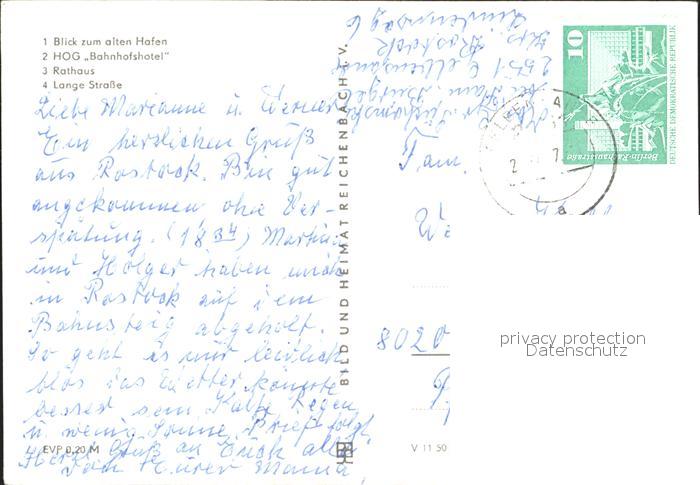 1 Blick zum alten Hafen
2 HOG „Bahnhofshotel"
3 Rathaus
4 Lange Straße
Liebe Marianne u. Werner
Ein herzlichen Gruß
aus Rostock. Bin gut
angekommen ohne Ver-
spätung. (18 34) Martina
und Holger haben mich
in Rostock auf dem
Bahnsteig abgeholt.
So geht es mir leidlich
blos das Wetter könnte
besser sein, Kalt, Regen
u. wenig Sonne. Brief folgt
Herzl. Gruß an Euch alle
von Eurer Mama
EVP 0,20 M
BILD UND HEIMAT REICHENBACH i. V.
V 11 50
2551
Krs. Rostock
Fam.
8020
10
Berlin-Rathausstraße
DEUTSCHE DEMOKRATISCHE REPUBLIK
privacy protection
Datenschutz